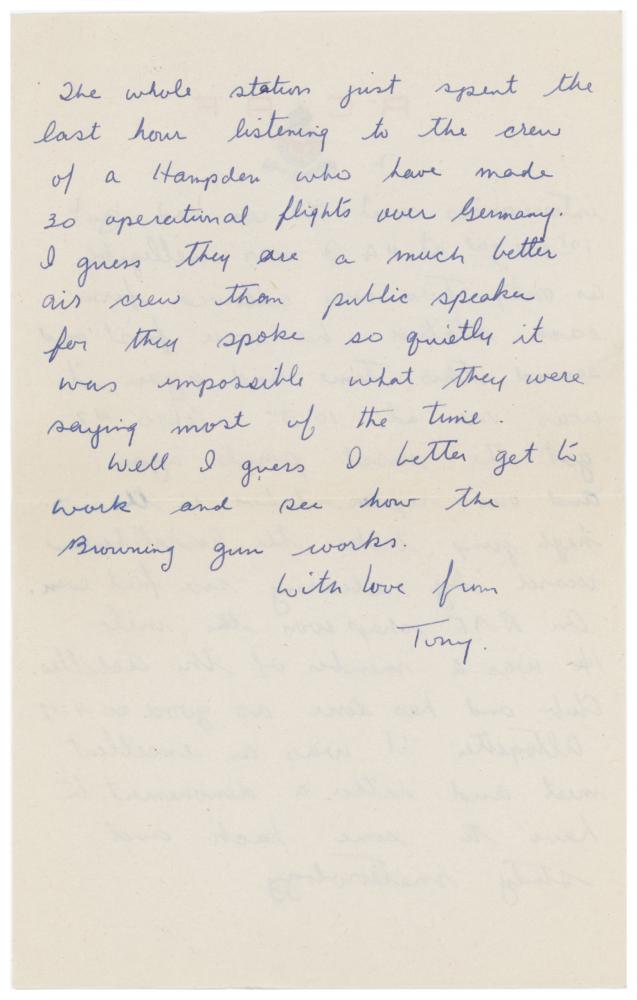 The whole station just spent the
last hour listening to the crew
of a Hampden who have made
30 operational flights over Germany.
I guess they are a much better
air crew than public speaker
for they spoke so quietly it
was impossible what they were
saying most of the time.
Well I guess I better get to
work and see how the
Browning gun works.
With love from
Tony.